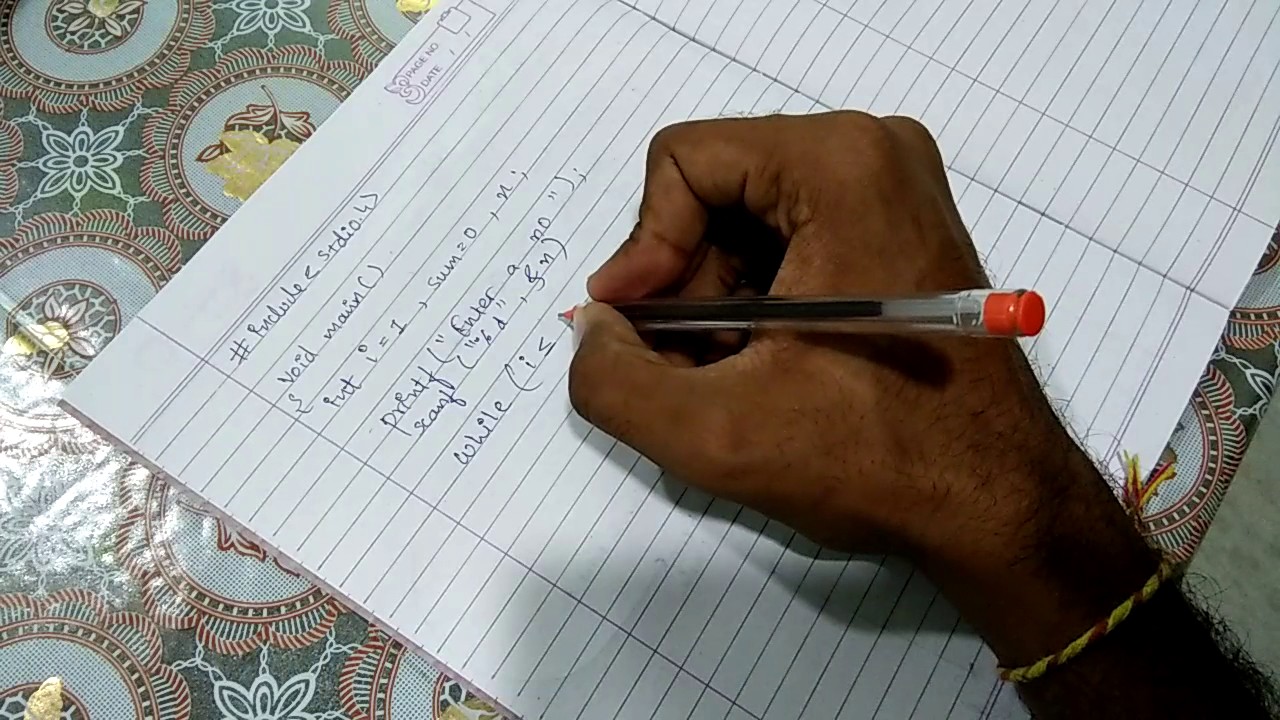 PAGE NO
DATE
# include < stdio.h>
void main()
{ int i = 1 , sum=0 , n ;
printf ("Enter a no ");
scanf ("%d" , &n)
while (i ≤